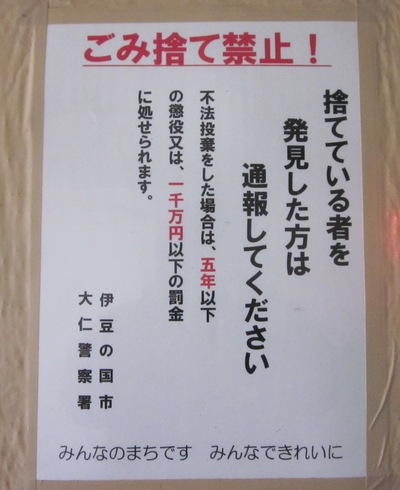 ごみ捨て禁止！
捨てている者を
発見した方は
通報してください
不法投棄をした場合は、五年以下
の懲役又は、一千万円以下の罰金
に処せられます。
伊豆の国市
大仁警察署
みんなのまちです　みんなできれいに